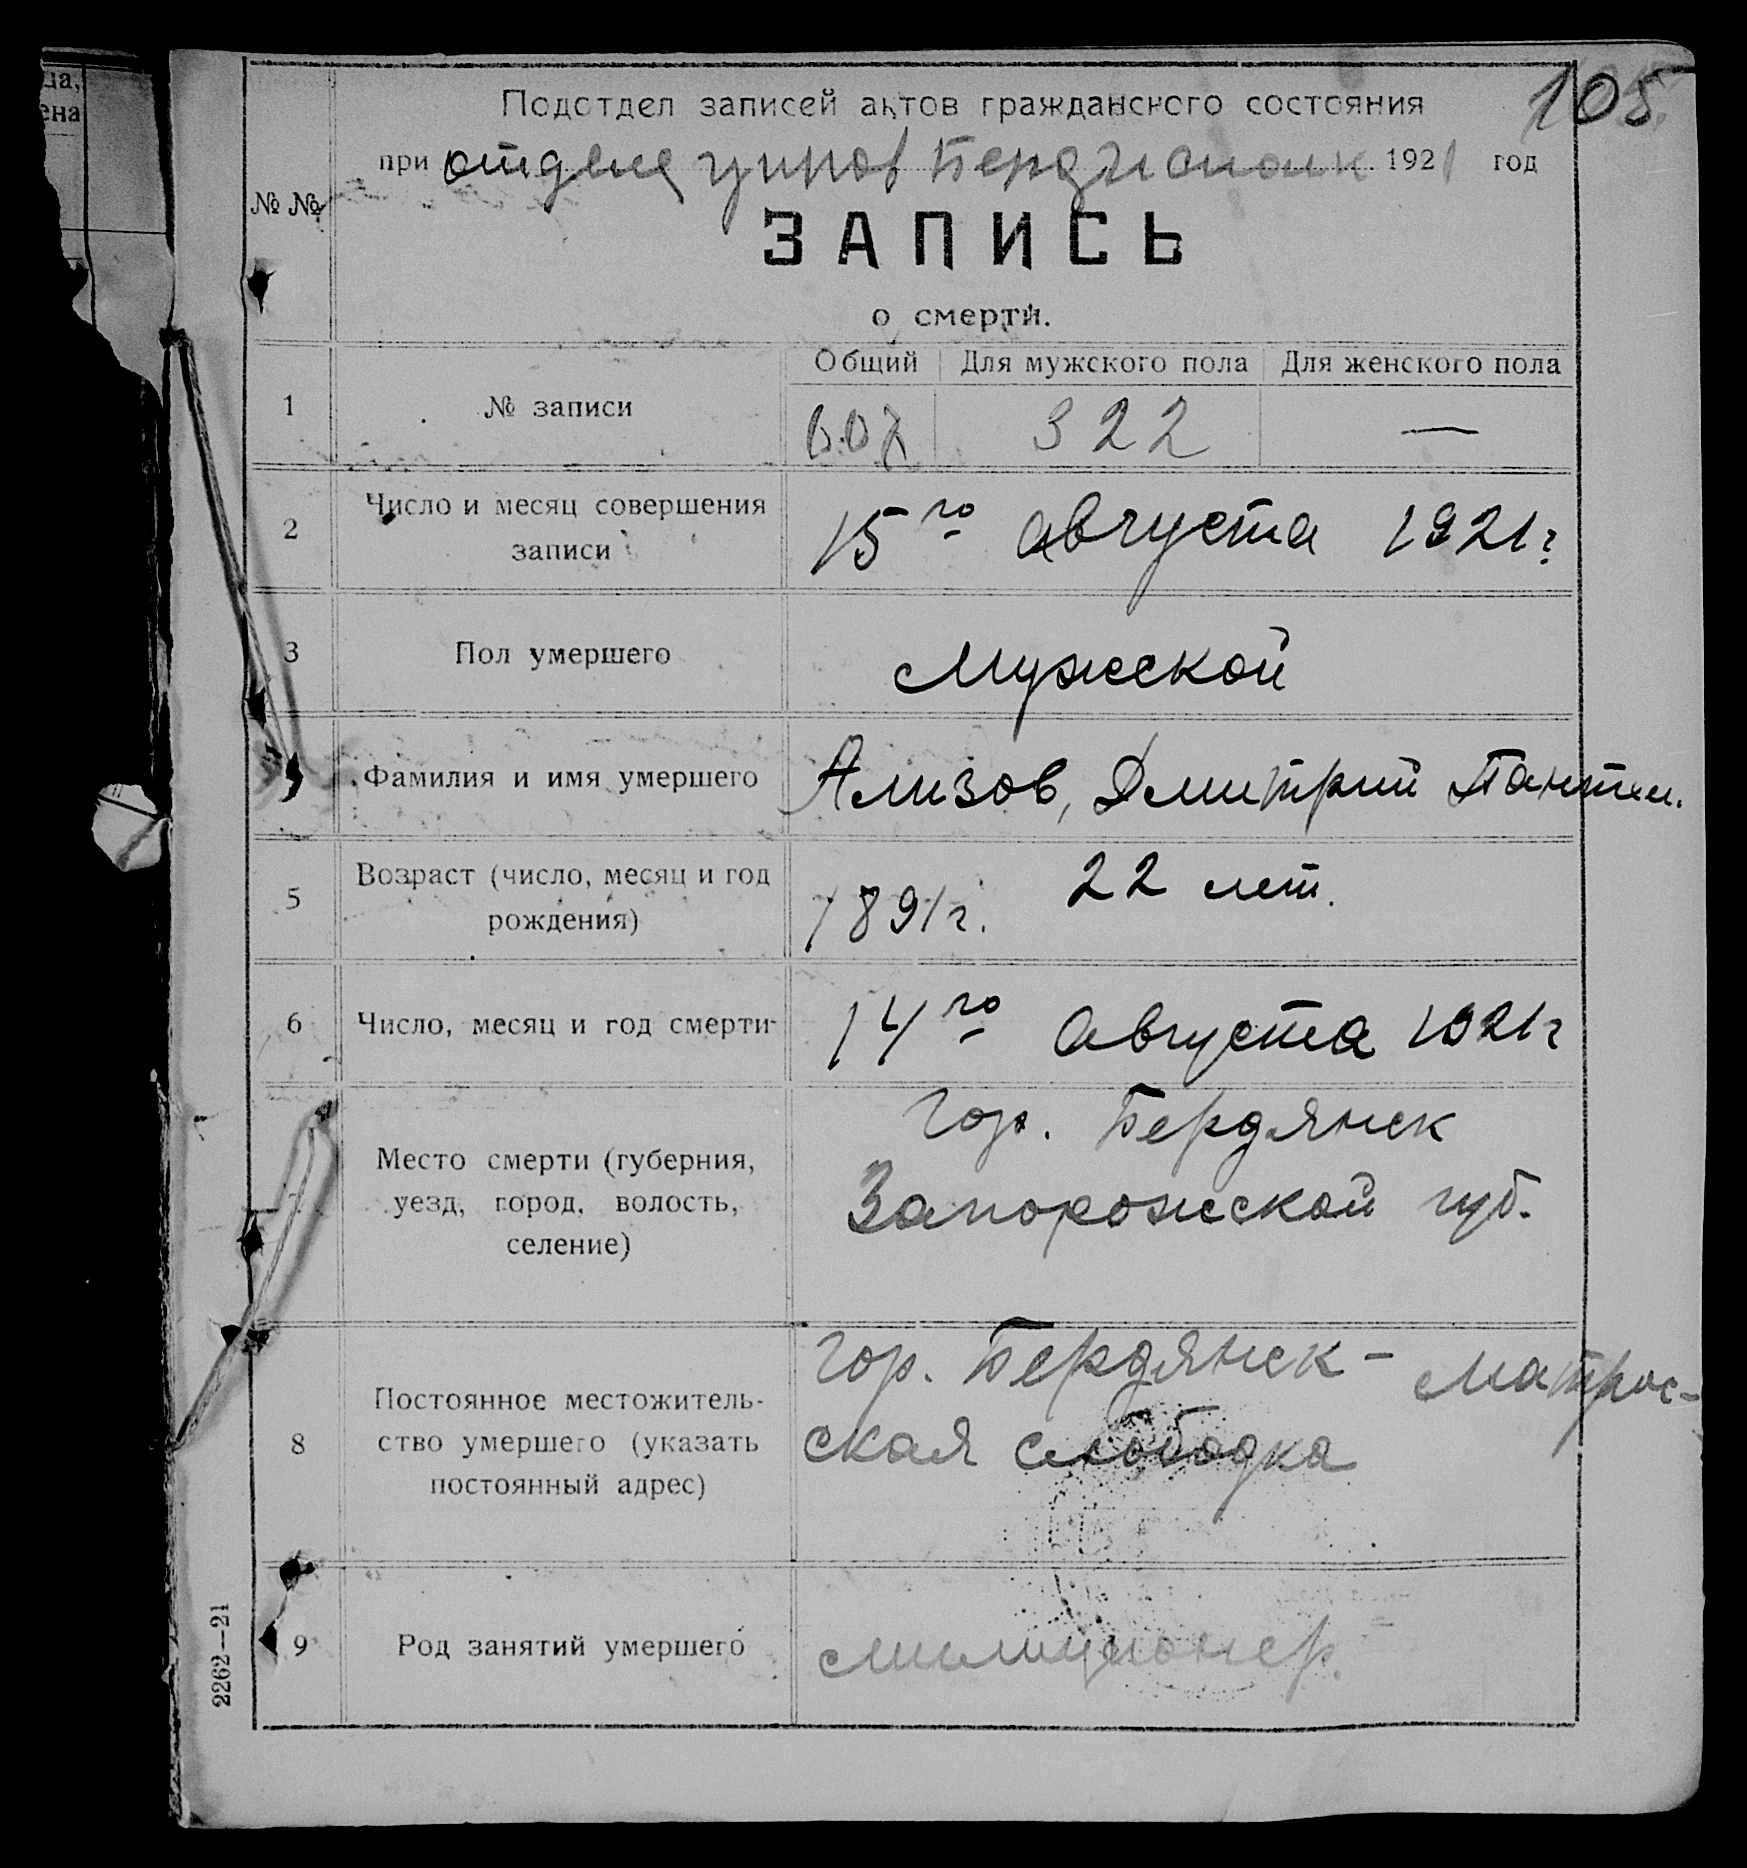 ца,
ена
105
Подотдел записей актов гражданского состояния
при отделе управ Бердисполк 1921 год
№ №
ЗАПИСЬ
о смерти.
Общий Для мужского пола Для женского пола
1 № записи 607 322 —
2 Число и месяц совершения
записи
15го августа 1921 г
3 Пол умершего мужской
Фамилия и имя умершего Ализов, Дмитрий Пантел.
5 Возраст (число, месяц и год
рождения)
1891 г. 22 лет.
6 Число, месяц и год смерти 14го августа 1921 г
7 Место смерти (губерния,
уезд, город, волость,
селение)
Гор. Бердянск
Запорожской губ.
8 Постоянное местожитель-
ство умершего (указать
постоянный адрес)
Гор. Бердянск - Матрос-
ская слободка
9 Род занятий умершего милиционер.
2262—21